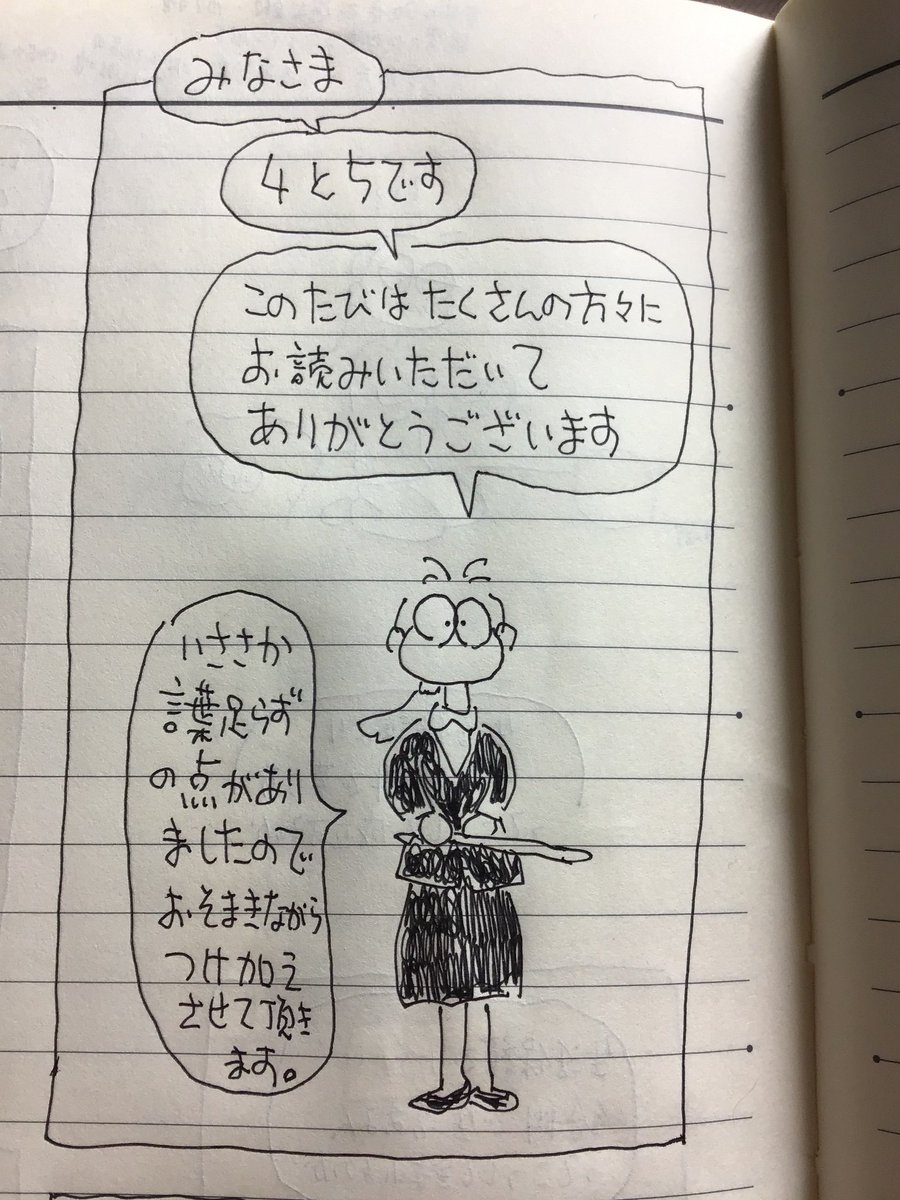 みなさま
4と5です
このたびはたくさんの方々に
お読みいただいて
ありがとうございます
いささか
言葉足らず
の点があり
ましたので
おそまきながら
つけ加え
させて頂き
ます。